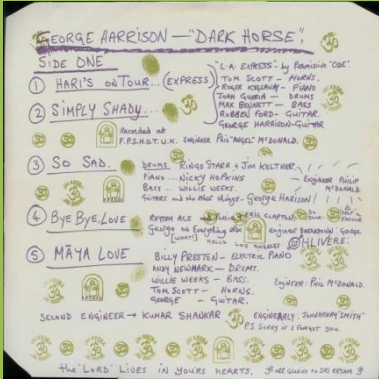 GEORGE HARRISON — "DARK HORSE".
SIDE ONE
① HARI'S ON TOUR... (EXPRESS)
"L.A. EXPRESS" - by Permission "ODE"
TOM SCOTT - HORNS.
ROGER KELLAWAY - PIANO
JOHN GUERIN - DRUMS
MAX BENNETT - BASS
ROBBEN FORD - GUITAR.
GEORGE HARRISON - GUITAR
② SIMPLY SHADY...
Recorded at
F.P.S.H.O.T. U.K. ENGINEER PHIL "ANGEL" McDONALD.
③ SO SAD.
DRUMS. RINGO STARR + JIM KELTNER.
PIANO... NICKY HOPKINS
BASS... WILLIE WEEKS.
GUITARS and the other things - George Harison!
Engineer PHILIP McDONALD.
④ BYE BYE, LOVE
RHYTHM ACE ERIC CLAPTON
George on Everything else
HELLO LOS ANGELES
engineer GEORGE.
OHLIVERE.
⑤ MĀYA LOVE
BILLY PRESTON - ELECTRIC PIANO
ANDY NEWMARK - DRUMS.
WILLIE WEEKS - BASS.
TOM SCOTT - HORNS.
GEORGE - GUITAR.
Engineer: PHIL McDONALD.
SECOND ENGINEER → KUMAR SHANKAR
ENGINEARLY: "SMITH"
P.S. Sorry if I forgot you.
the 'LORD' LIVES IN YOURE HEARTS. all Glories to SRI KRSNA